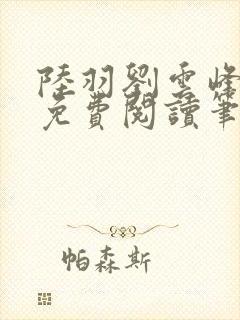 陸羽劉雲峰
免費閱讀筆
帕森斯